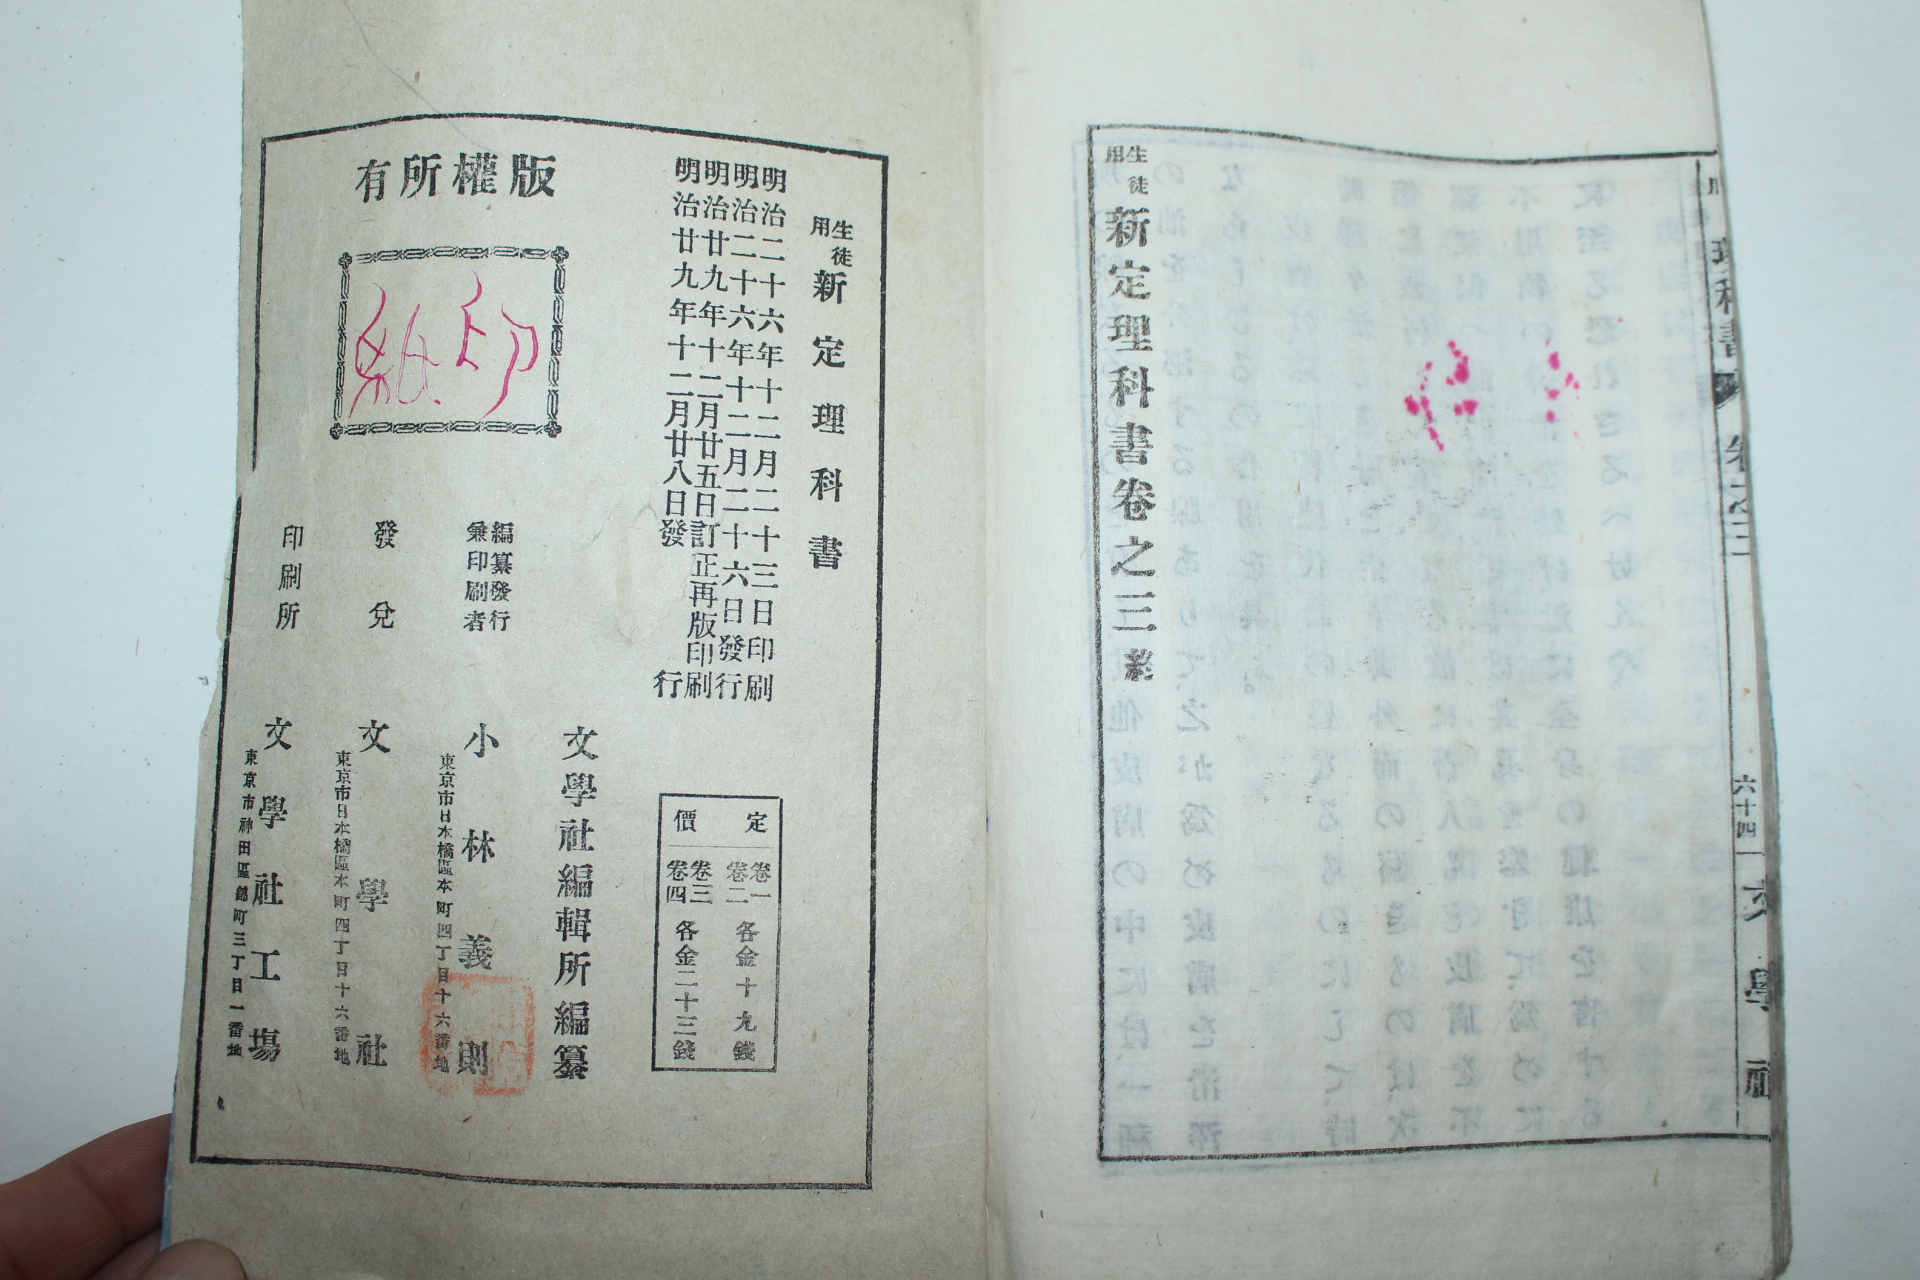 生徒用
新定理科書卷之三終
理科書
卷之三
六十四
文學社
生徒用
新定理科書
明治二十六年十二月二十三日印刷
明治二十六年十二月二十六日發行
明治廿九年十二月廿五日訂正再版印刷
明治廿九年十二月廿八日發行
定價
卷一
卷二
各金十九錢
卷三
卷四
各金二十三錢
版權所有
印紙
文學社編輯所編纂
編纂發行
兼印刷者
小林義則
東京市日本橋區本町四丁目十六番地
發兌
文學社
東京市日本橋區本町四丁目十六番地
印刷所
文學社工場
東京市神田區錦町三丁目一番地